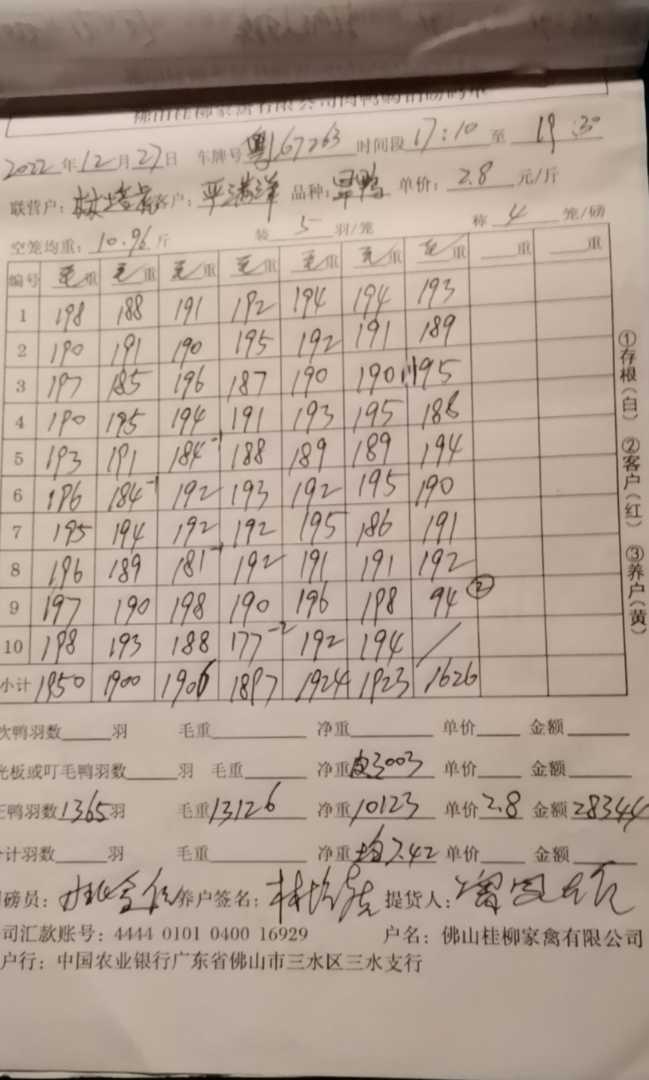 2022年12月27日 车牌号粤J67263 时间段17:10至19:30
联营户: 客户: 平满洋 品种: 旱鸭 单价: 2.8元/斤
空笼均重: 10.96斤 装5羽/笼 称4笼/磅
编号 毛重 毛重 毛重 毛重 毛重 毛重 毛重 重 重
1 198 188 191 192 194 194 193
2 190 191 190 195 192 191 189
3 197 185 196 187 190 190 195
4 190 195 194 191 193 195 188
5 193 191 184-1 188 189 189 194
6 196 184-1 192 193 192 195 190
7 195 194 192 192 195 186 191
8 196 189 181-1 192 191 191 192
9 197 190 198 190 196 198 94②
10 198 193 188 177-2 192 194 /
小计 1950 1900 1906 1897 1924 1923 1626
次鸭羽数 羽 毛重 净重 单价 金额
光板或叮毛鸭羽数 羽 毛重 净重皮3003 单价 金额
正鸭羽数1365羽 毛重13126 净重10123 单价2.8 金额28344
合计羽数 羽 毛重 净重均7.42 单价 金额
司磅员: 养户签名: 提货人:
司汇款账号: 4444 0101 0400 16929 户名: 佛山桂柳家禽有限公司
户行: 中国农业银行广东省佛山市三水区三水支行
①存根(白) ②客户(红) ③养户(黄)